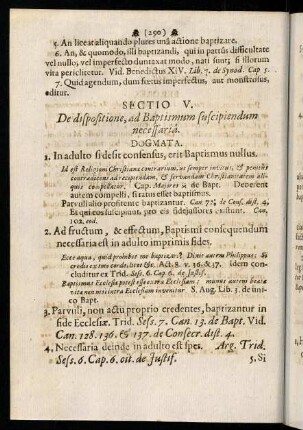 ( 290 )
5. An liceat aliquando plures unâ actione baptizare.
6. An, & quomodo, illi baptizandi, qui in partûs difficultate
vel nullo, vel imperfecto duntaxat modo, nati sunt; si illorum
vita periclitetur. Vid. Benedictus XIV. Lib. 7. de Synod. Cap 5.
7. Quid agendum, dum fœtus imperfectus, aut monstrosus,
editur.
SECTIO V.
De dispositione, ad Baptismum suscipiendum
necessaria.
DOGMATA.
1. In adulto si desit consensus, erit Baptismus nullus.
Id est Religioni Christianæ contrarium, ut semper invitus, & penitus
contradicens ad recipiendam, & servandam Christianitatem aliquis
compellatur. Cap. Majores 2. de Bapt. Deberent
autem compelli, si ratus esset baptismus.
Parvuli alio profitente baptizantur. Can 77. de Cons. dist. 4.
Et qui eos suscipiunt, pro eis fidejussores existunt. Can.
102. eod.
2. Ad fructum, & effectum, Baptismi consequendum
necessaria est in adulto imprimis fides.
Ecce aqua, quid prohibet me baptizari? Dixit autem Philippus; Si
credis ex toto corde, licet &c. Act. 8. v. 36. & 37. idem concluditur
ex Trid. Sess. 6. Cap 6. de Justif.
Baptismus Ecclesiæ potest esse extra Ecclesiam; munus autem beatæ
vitæ non nisi intra Ecclesiam invenitur. S. Aug. Lib. 3. de unico
Bapt.
3. Parvuli, non actu proprio credentes, baptizantur in
fide Ecclesiæ. Trid. Sess. 7. Can. 13. de Bapt. Vid.
Can. 128. 136. & 137. de Consecr. dist. 4.
4. Necessaria deinde in adulto est spes. Arg. Trid.
Sess. 6. Cap. 6. cit. de Justif.
5. Si